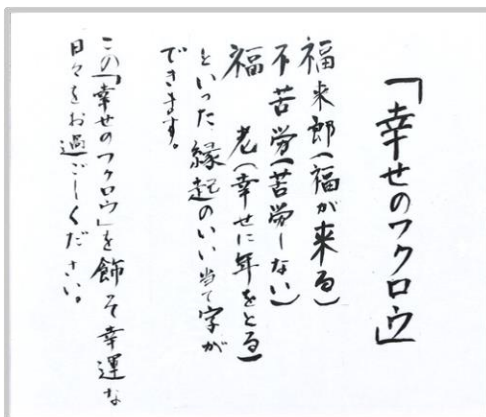 「幸せのフクロウ」
福来郎(福が来る)
不苦労(苦労しない)
福 老(幸せに年をとる)
といった縁起のいい当て字が
できます。
この「幸せのフクロウ」を飾そ幸運な
日々をお過ごしください。